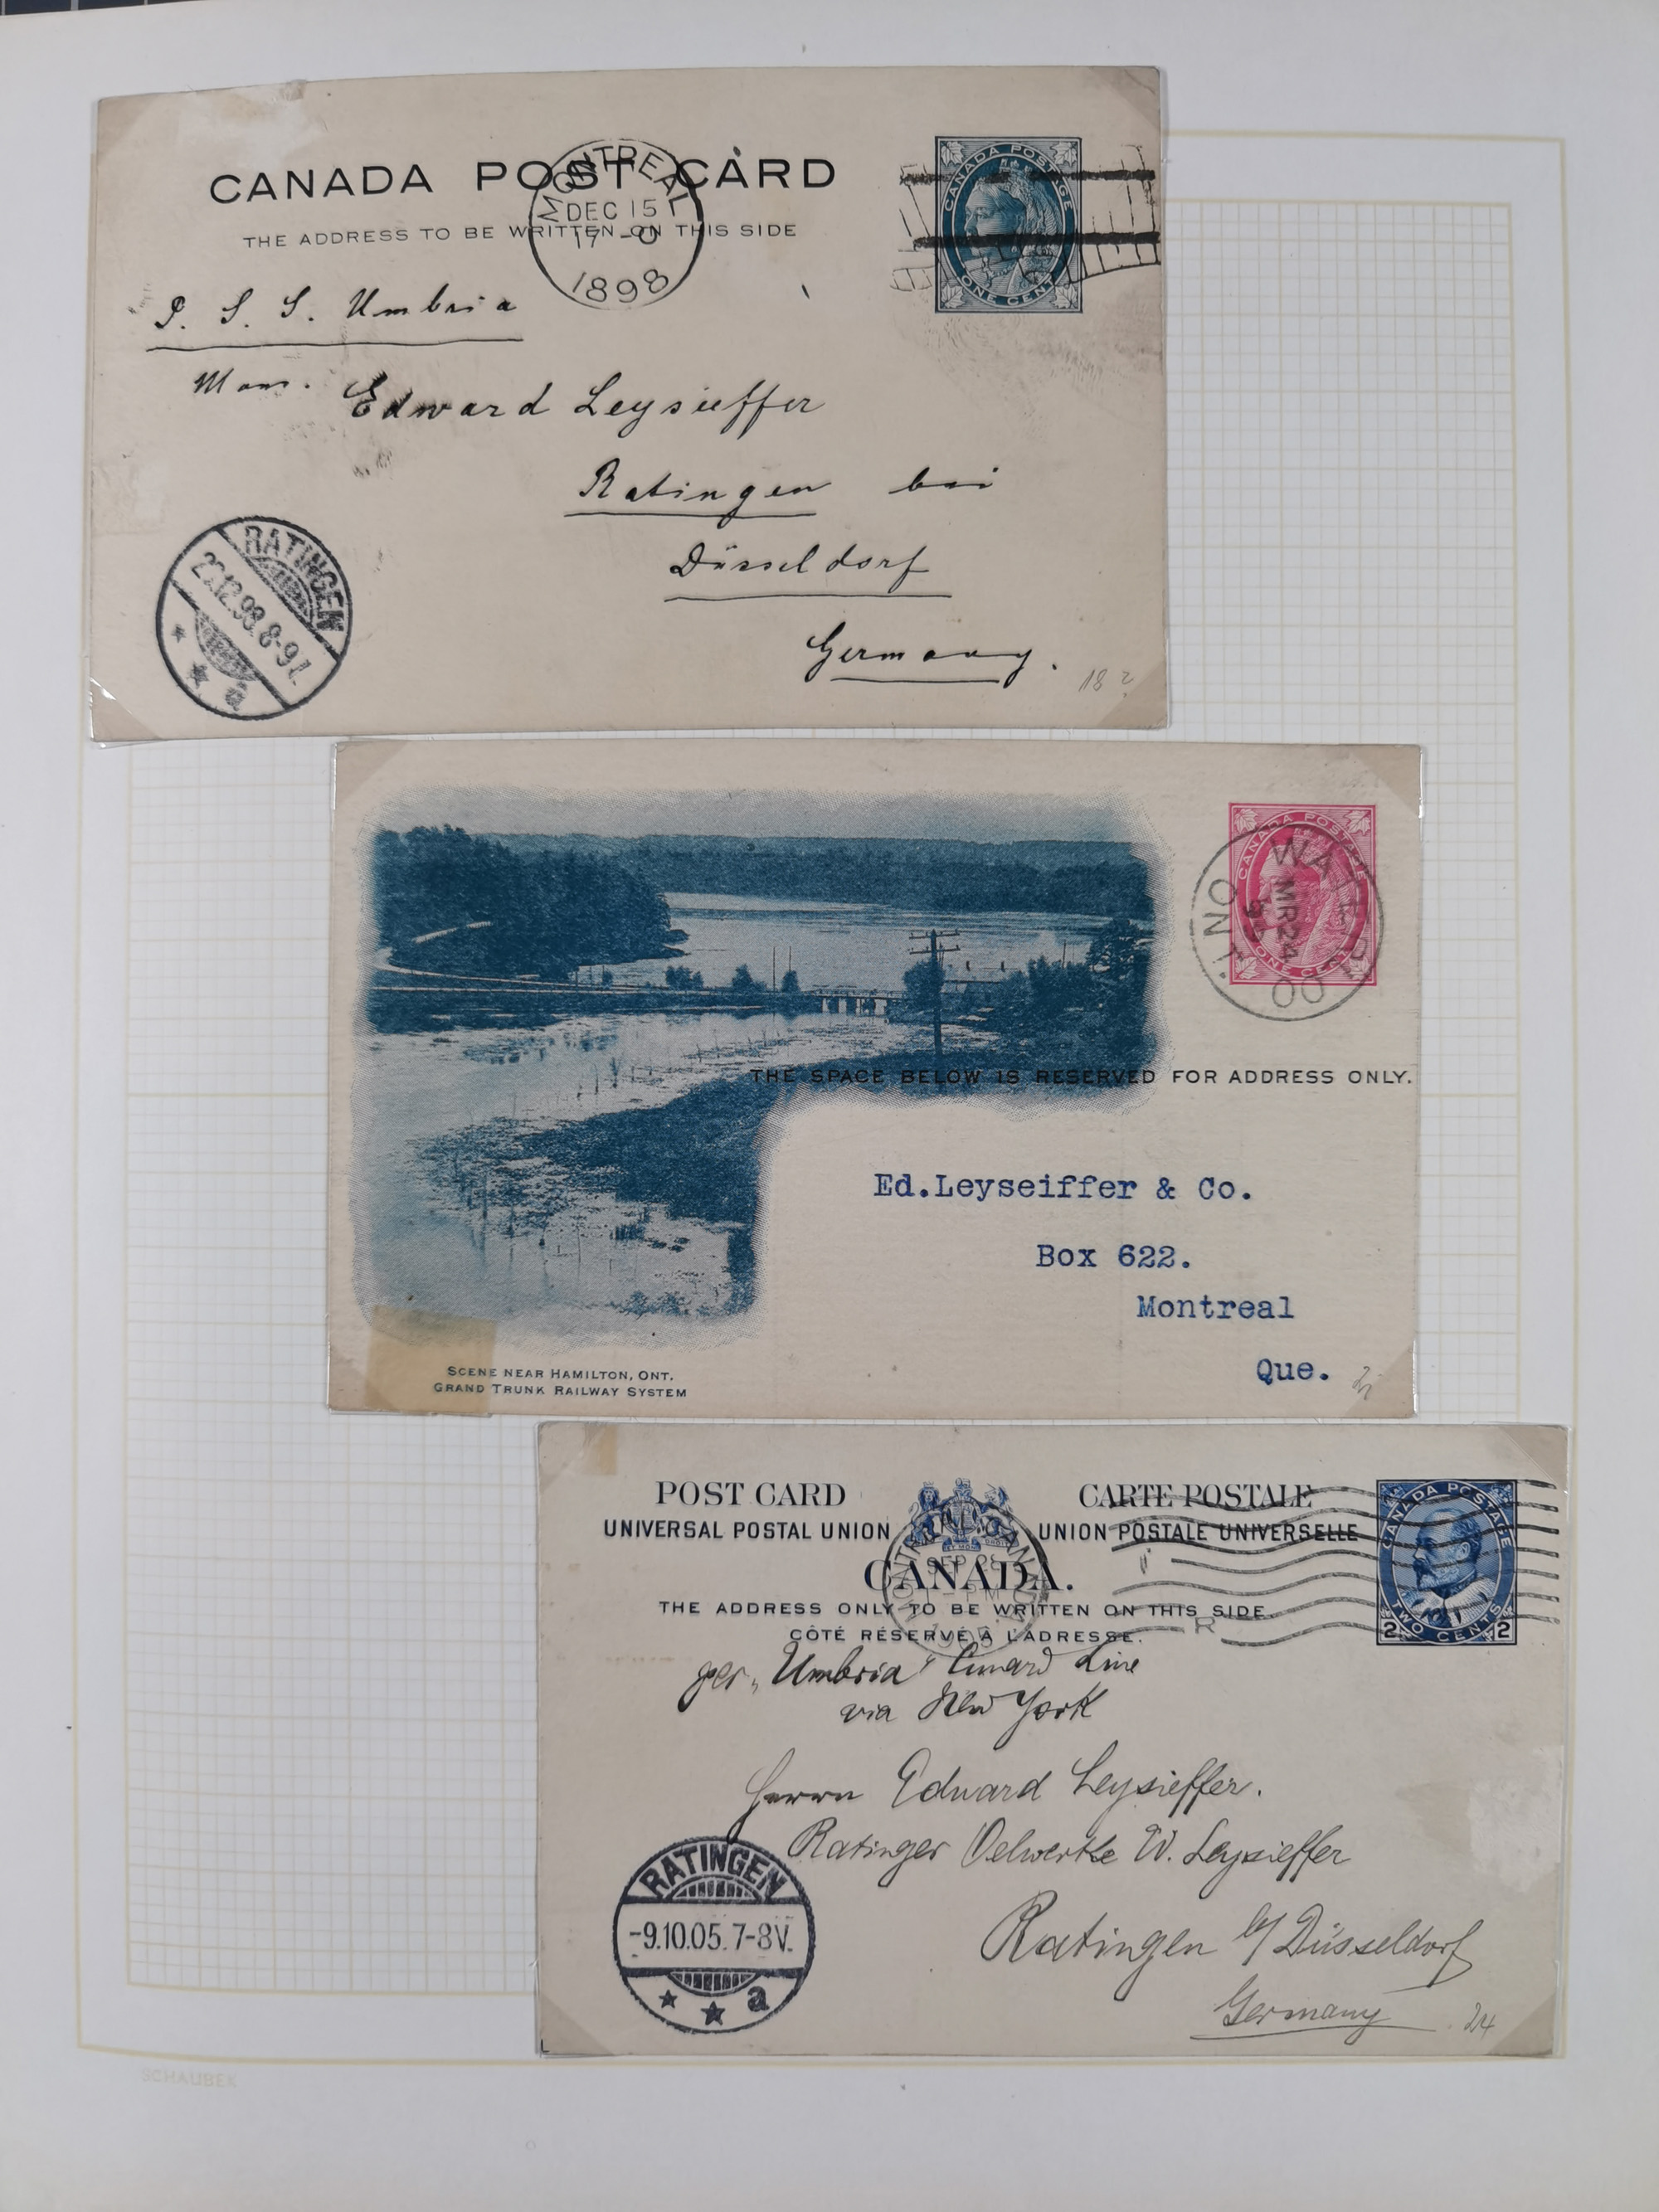 CANADA POST CARD
THE ADDRESS TO BE WRITTEN ON THIS SIDE
MONTREAL
DEC 15
17 - 0
1898
CANADA POSTAGE
ONE CENT
P. S. S. Umbria
Mons. Edward Leysieffer
Ratingen bei
Düsseldorf
Germany.
18
RATINGEN
12.98. 8-9
a
CANADA POSTAGE
ONE CENT
WATERLOO
ONT.
MR 24
THE SPACE BELOW IS RESERVED FOR ADDRESS ONLY.
Ed.Leyseiffer & Co.
Box 622.
Montreal
Que.
SCENE NEAR HAMILTON, ONT.
GRAND TRUNK RAILWAY SYSTEM
POST CARD CARTE POSTALE
UNIVERSAL POSTAL UNION UNION POSTALE UNIVERSELLE
CANADA.
THE ADDRESS ONLY TO BE WRITTEN ON THIS SIDE.
CÔTÉ RÉSERVÉ A L'ADRESSE.
CANADA POSTAGE
2 TWO CENTS 2
MONTREAL
SEP
R
per "Umbria" Cunard Line
via New York
Herrn Edward Leysieffer.
Ratinger Oelwerke W. Leysieffer
Ratingen b/Düsseldorf
Germany
24
RATINGEN
-9.10.05. 7-8V.
a
SCHAUBEK